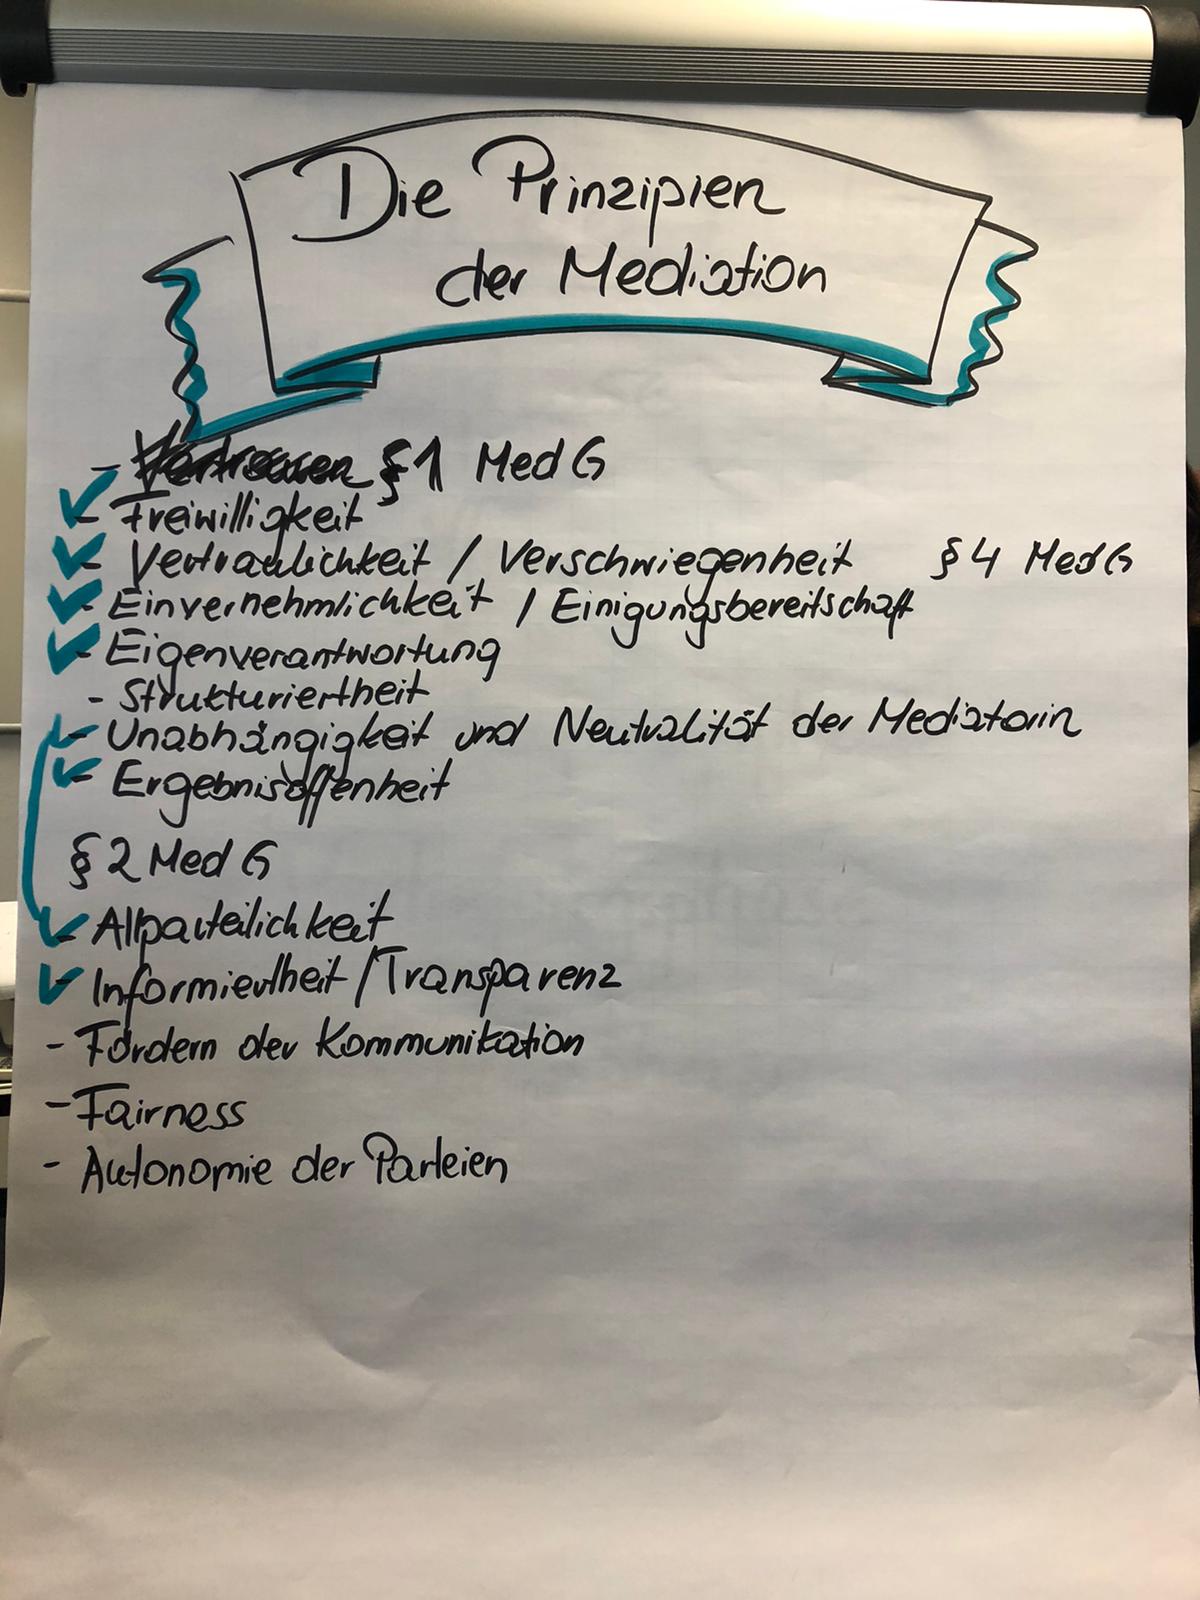 Die Prinzipien
der Mediation
- Vertrauen § 1 Med G
- Freiwilligkeit
- Vertraulichkeit / Verschwiegenheit § 4 Med G
- Einvernehmlichkeit / Einigungsbereitschaft
- Eigenverantwortung
- Strukturiertheit
- Unabhängigkeit und Neutralität der Mediatorin
- Ergebnisoffenheit
§ 2 Med G
- Allparteilichkeit
- Informiertheit / Transparenz
- Fördern der Kommunikation
- Fairness
- Autonomie der Parteien